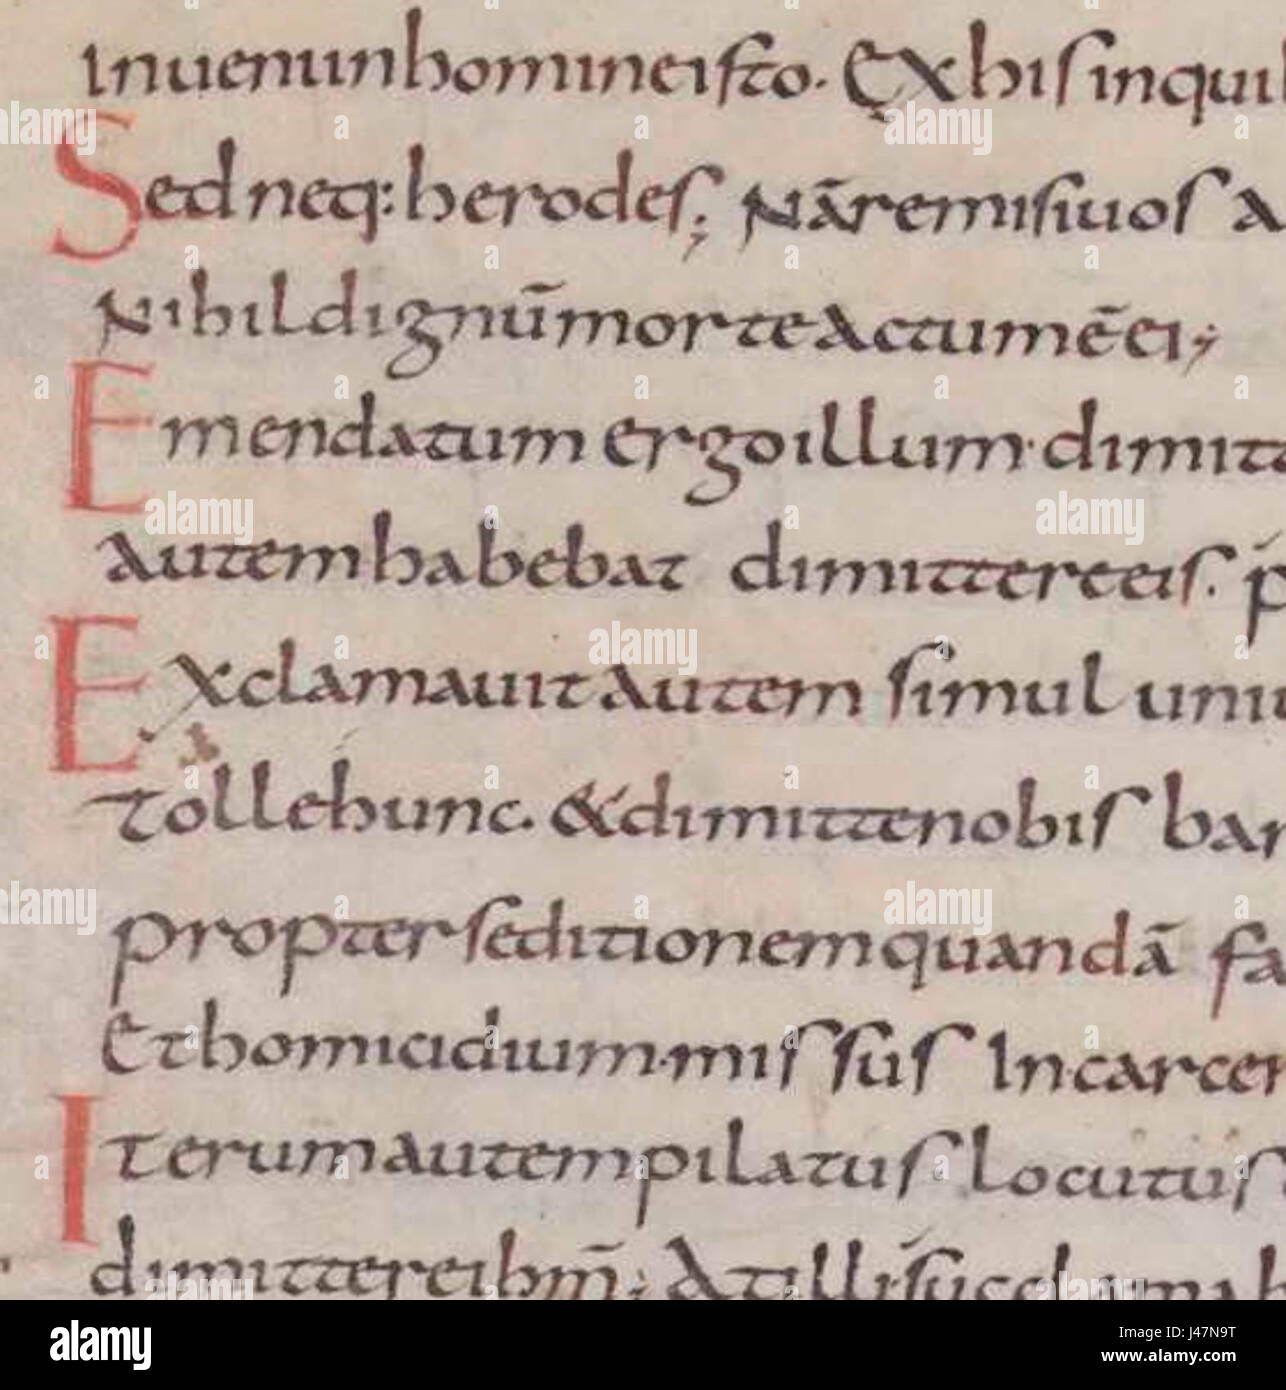 inuenı in homine isto. Ex his in qui
Sed neq: herodes; Nā remisi uos a
Nihil dignū morte actum ē ei;
Emendatum ergo illum. dimitt
autem habebat dimittere eis. p
Exclamauit autem simul uni
Tolle hunc. & dimitte nobis bar
propter seditionem quandā fa
Et homicidium. missus In carcer
Iterum autem pilatus locutus
dimittere ihm̄; At illi succlamab
alamy
J47N9T
www.alamy.com